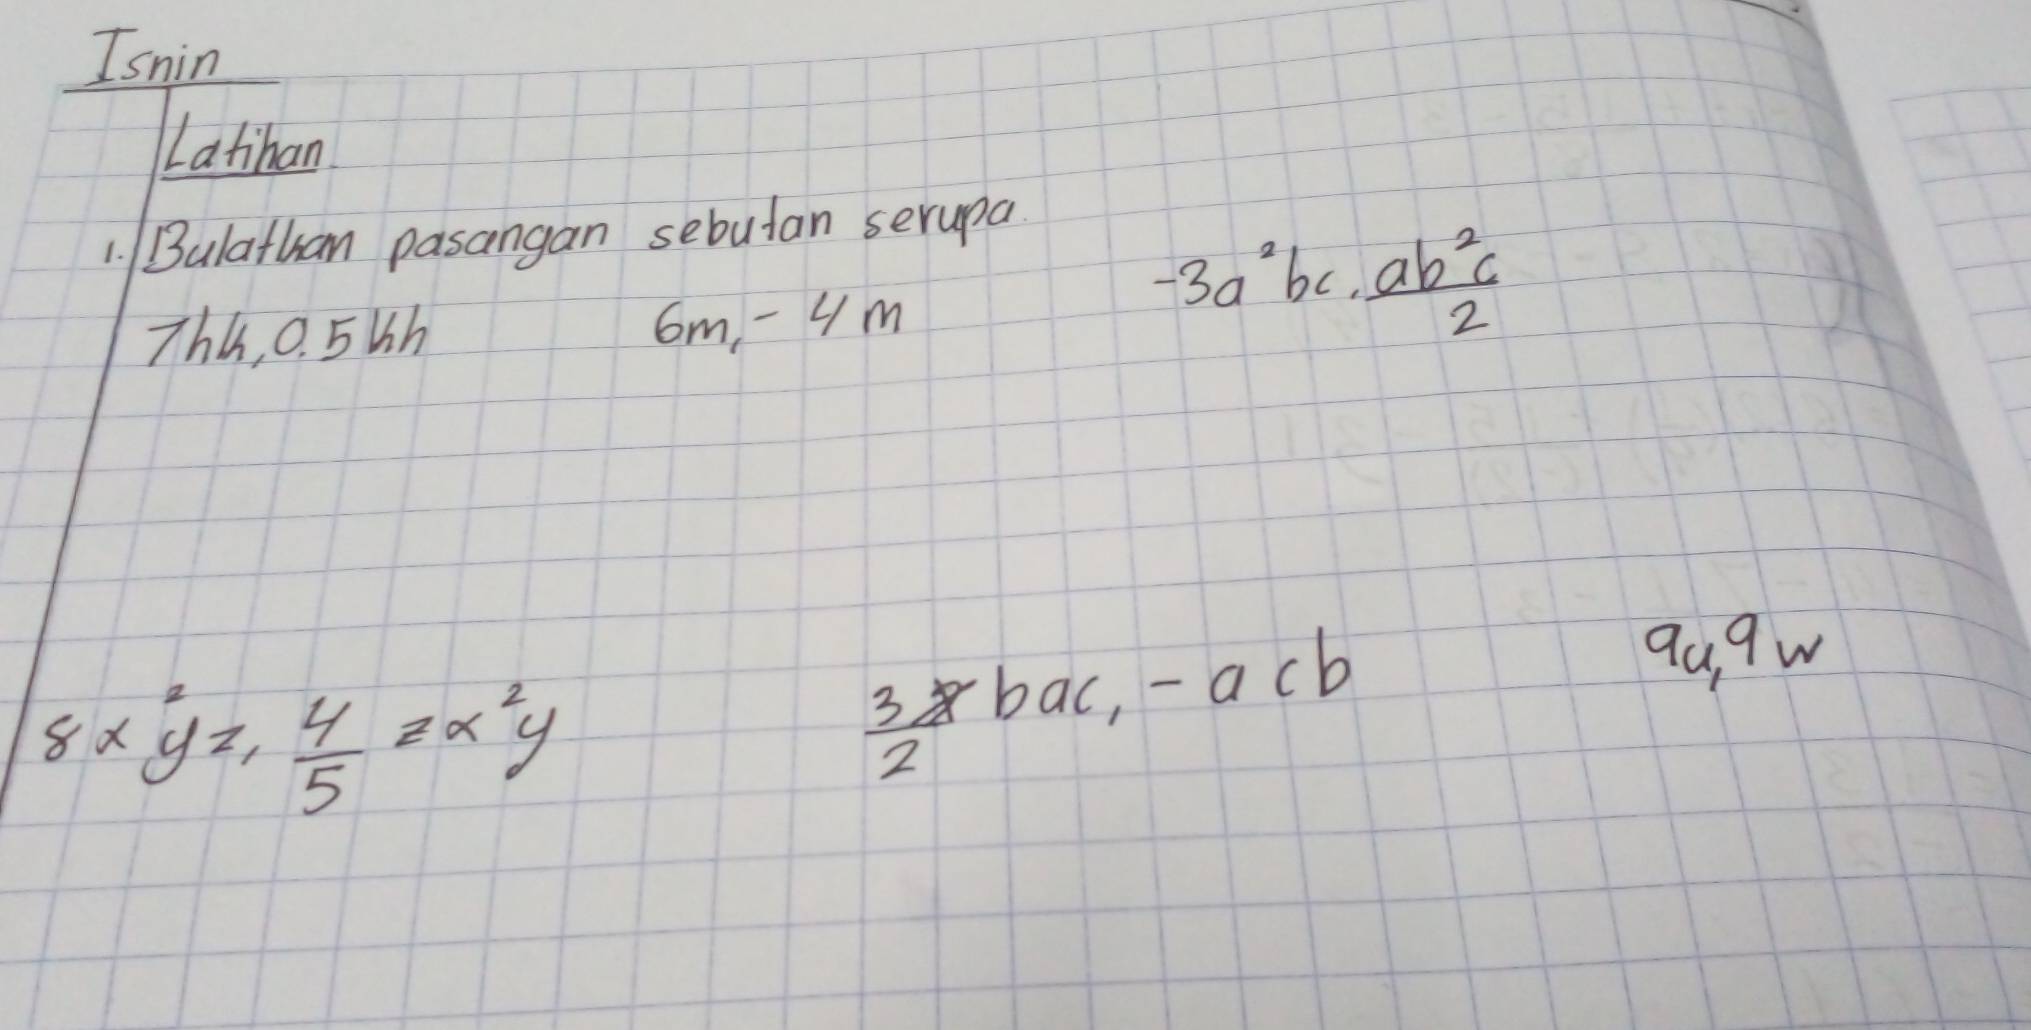 Isnin
Latihan
1. Bulatkan pasangan sebutan serupa.
7hk, 0.5kh 6m, -4m -3a²bc, ab²c/2
8x²yz, 4/5 zx²y 3/2 bac, -acb 9u, 9w